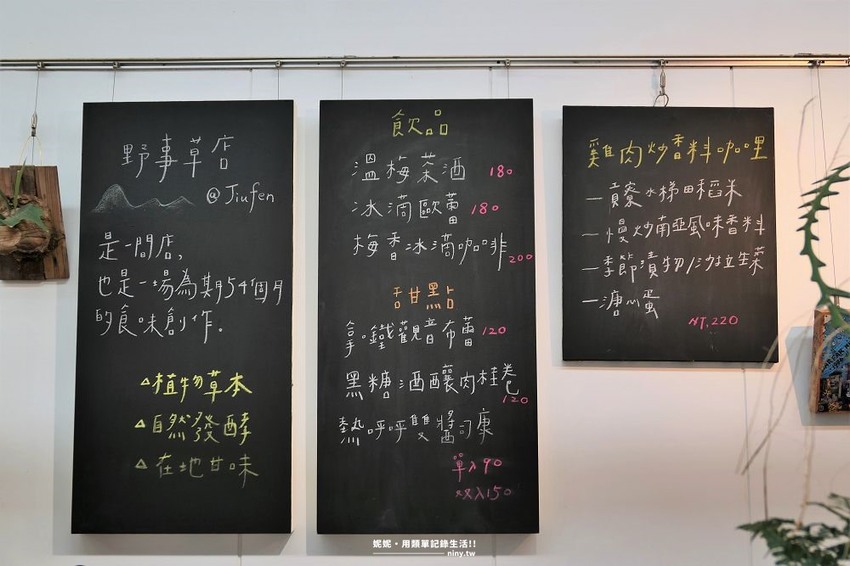 野事草店
@Jiufen
是一間店,
也是一場為期54個月
的食味創作.
△植物草本
△自然發酵
△在地甘味
飲品
溫梅菜酒 180
冰滴歐蕾 180
梅香冰滴咖啡 200
甜點
拿鐵觀音布蕾 120
黑糖酒釀肉桂卷 120
熱呼呼雙醬司康
單入90
双入150
雞肉炒香料咖哩
一貢寮水梯田稻米
一慢炒南亞風味香料
一季節漬物/沙拉生菜
一溏心蛋
NT.220
妮妮。用類單記錄生活!!
niny.tw